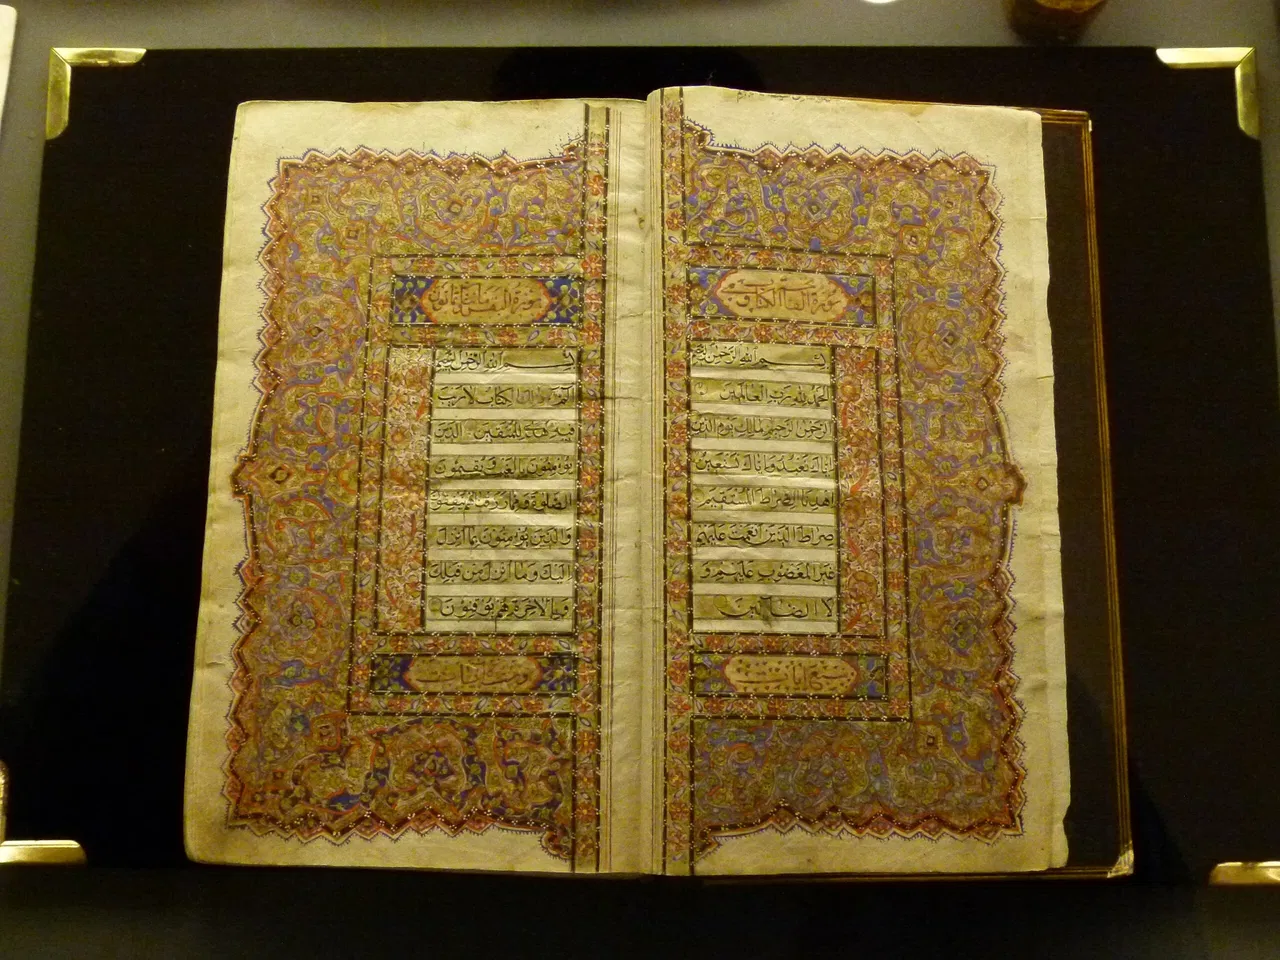 سورة الفاتحة الكتاب
بسم الله الرحمن الرحيم
الحمد لله رب العالمين
الرحمن الرحيم مالك يوم الدين
اياك نعبد واياك نستعين
اهدنا الصراط المستقيم
صراط الذين انعمت عليهم
غير المغضوب عليهم و
لا الضالين
سبع ايات
سورة البقرة مائتان
بسم الله الرحمن الرحيم
الم ذلك الكتاب لا ريب
فيه هدى للمتقين الذين
يؤمنون بالغيب ويقيمون
الصلوة ومما رزقناهم ينفقون
والذين يؤمنون بما انزل
اليك وما انزل من قبلك
وبالاخرة هم يوقنون